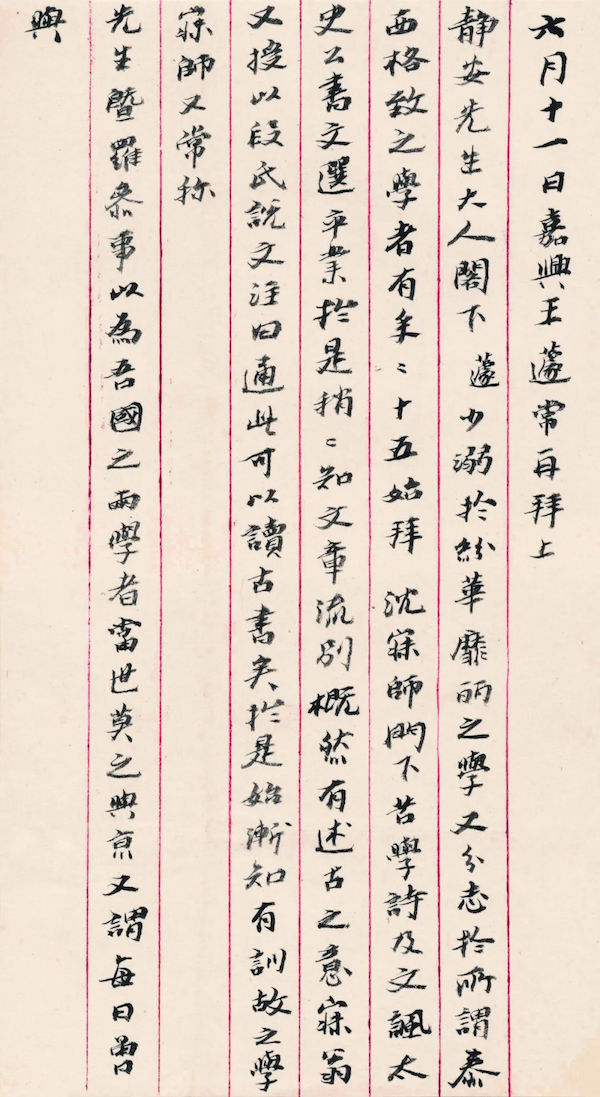 六月十一日嘉興王蘧常再拜上
靜安先生大人閣下蘧少溺於紛華靡麗之學又分志於所謂泰
西格致之學者有年〻十五始拜沈寐師門下苦學詩及文諷太
史公書文選卒業於是稍〻知文章流別概然有述古之意寐翁
又授以段氏說文注曰通此可以讀古書矣於是始漸知有訓故之學
寐師又常称
先生曁羅叅事以為吾國之兩學者當世莫之與京又謂每日曽
與